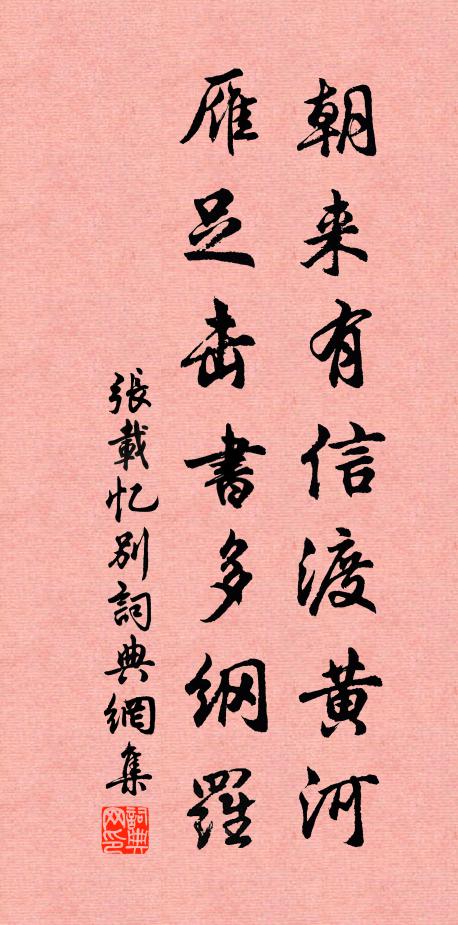 朝来有信渡黄河
雁足击書多纲羅
張載忆别詞典網集
詞典网印